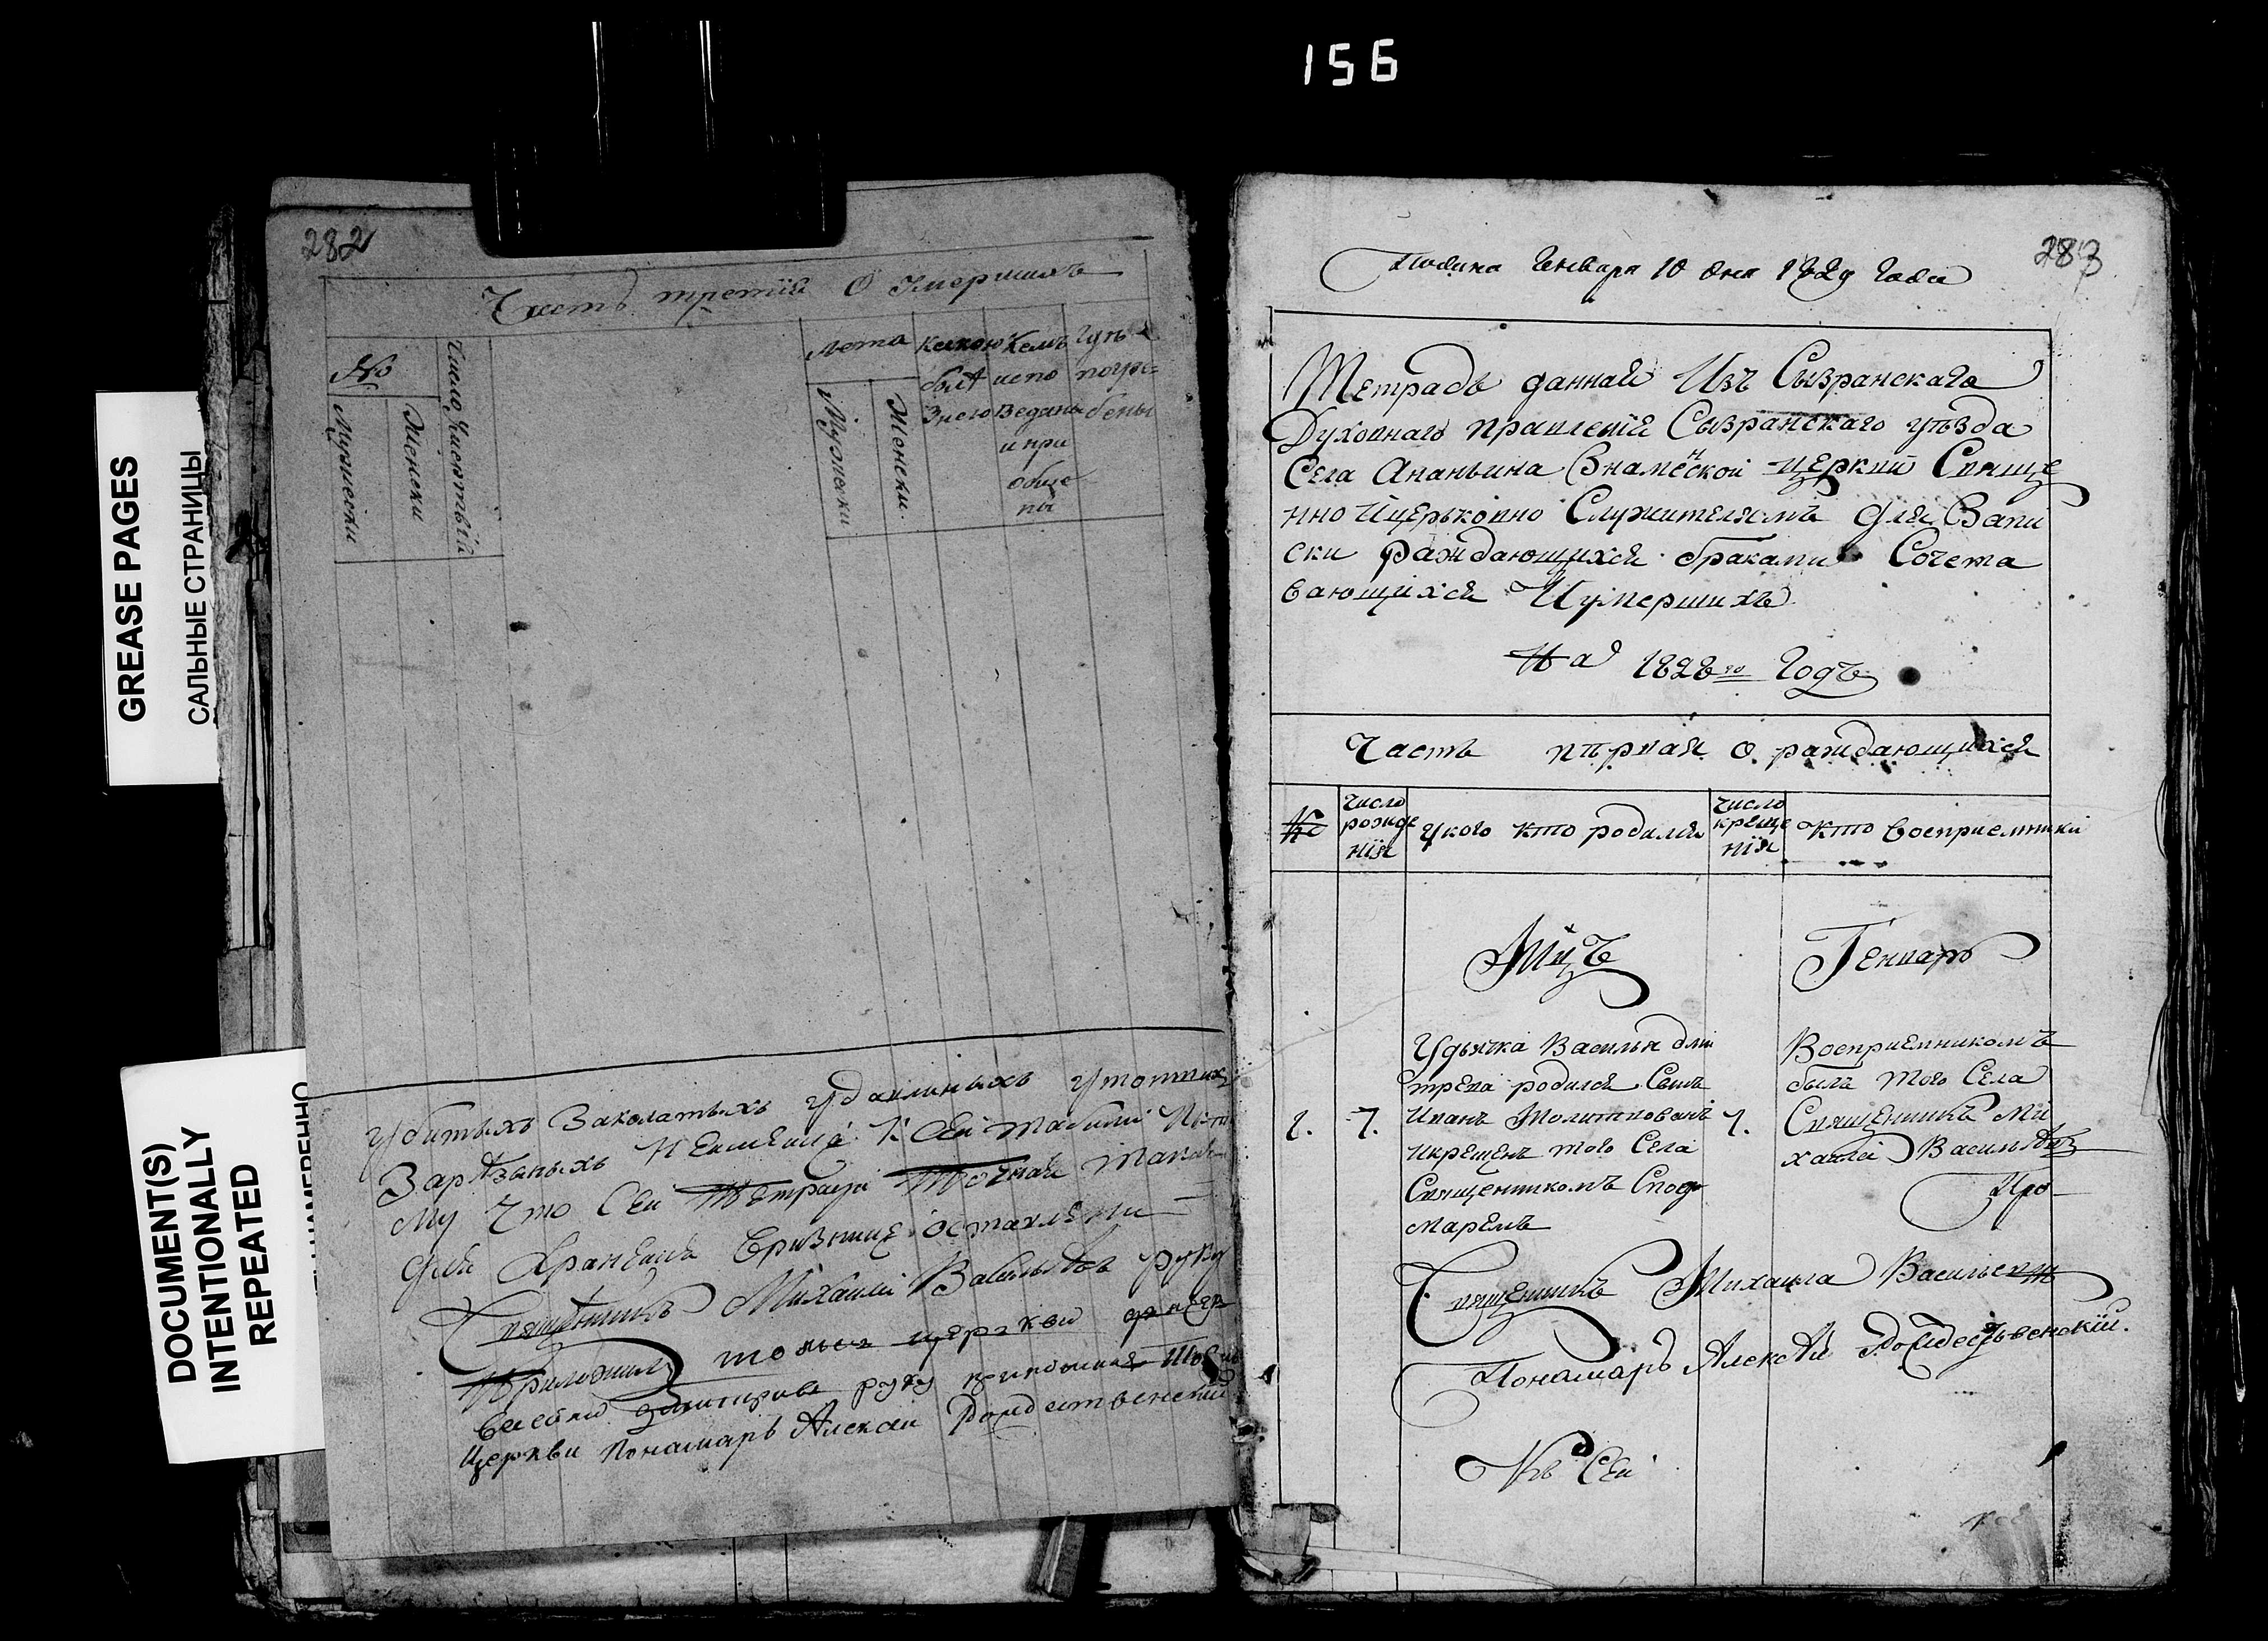 156
GREASE PAGES
САЛЬНЫЕ СТРАНИЦЫ
DOCUMENT(S)
INTENTIONALLY
REPEATED
НАМЕРЕННО
282
Часть третія О Умершихъ
№
Мужески
Женски
Число Чиселъ
Лета
Мужески
Женски
Какою болѣзнею
Кемъ испо ведани и при обще ны
Гдѣ погре= бены
Убитыхъ Заколатыхъ удавлиныхъ утопших
Зарѣзыныхъ неимеица К Сей
му Что Сей Тетради Точная такая
для Хранения Вризнице оставлена
Священникъ Михаилъ Васильевъ руку
Приложилъ тоя церкви
руку приложилъ
Церкви Пономарь Алексей Рождественский
283
Подина Генваря 10 дня 1829 Года
Тетрадь данная Изъ Сызранскаго
Духовнаго правления Сызранскаго уѣзда
Села Ананьина Знаменской церкви Свяще
нно Ицерьковно Служителямъ для Запи
ски раждающихся браками Сочета
вающихся Иумершихъ
На 1828го Годъ
Часть первая о раждающихся
№
Число рожде нїя
Укого кто родился
Число креще нїя
Кто восприемники
Мцъ Генварь
Удьячка Василья дми
трева родился Сынъ
2. 7. Иванъ Молитвованъ 7.
Икрещенъ того Села
Священникомъ Спонo
маремъ
Восприемникомъ
былъ того Села
Священникъ Ми
хаилъ Васильевъ
Священникъ Михаила Васильевъ
Пономарь Алексѣй Рождественскїй.
Къ Сей